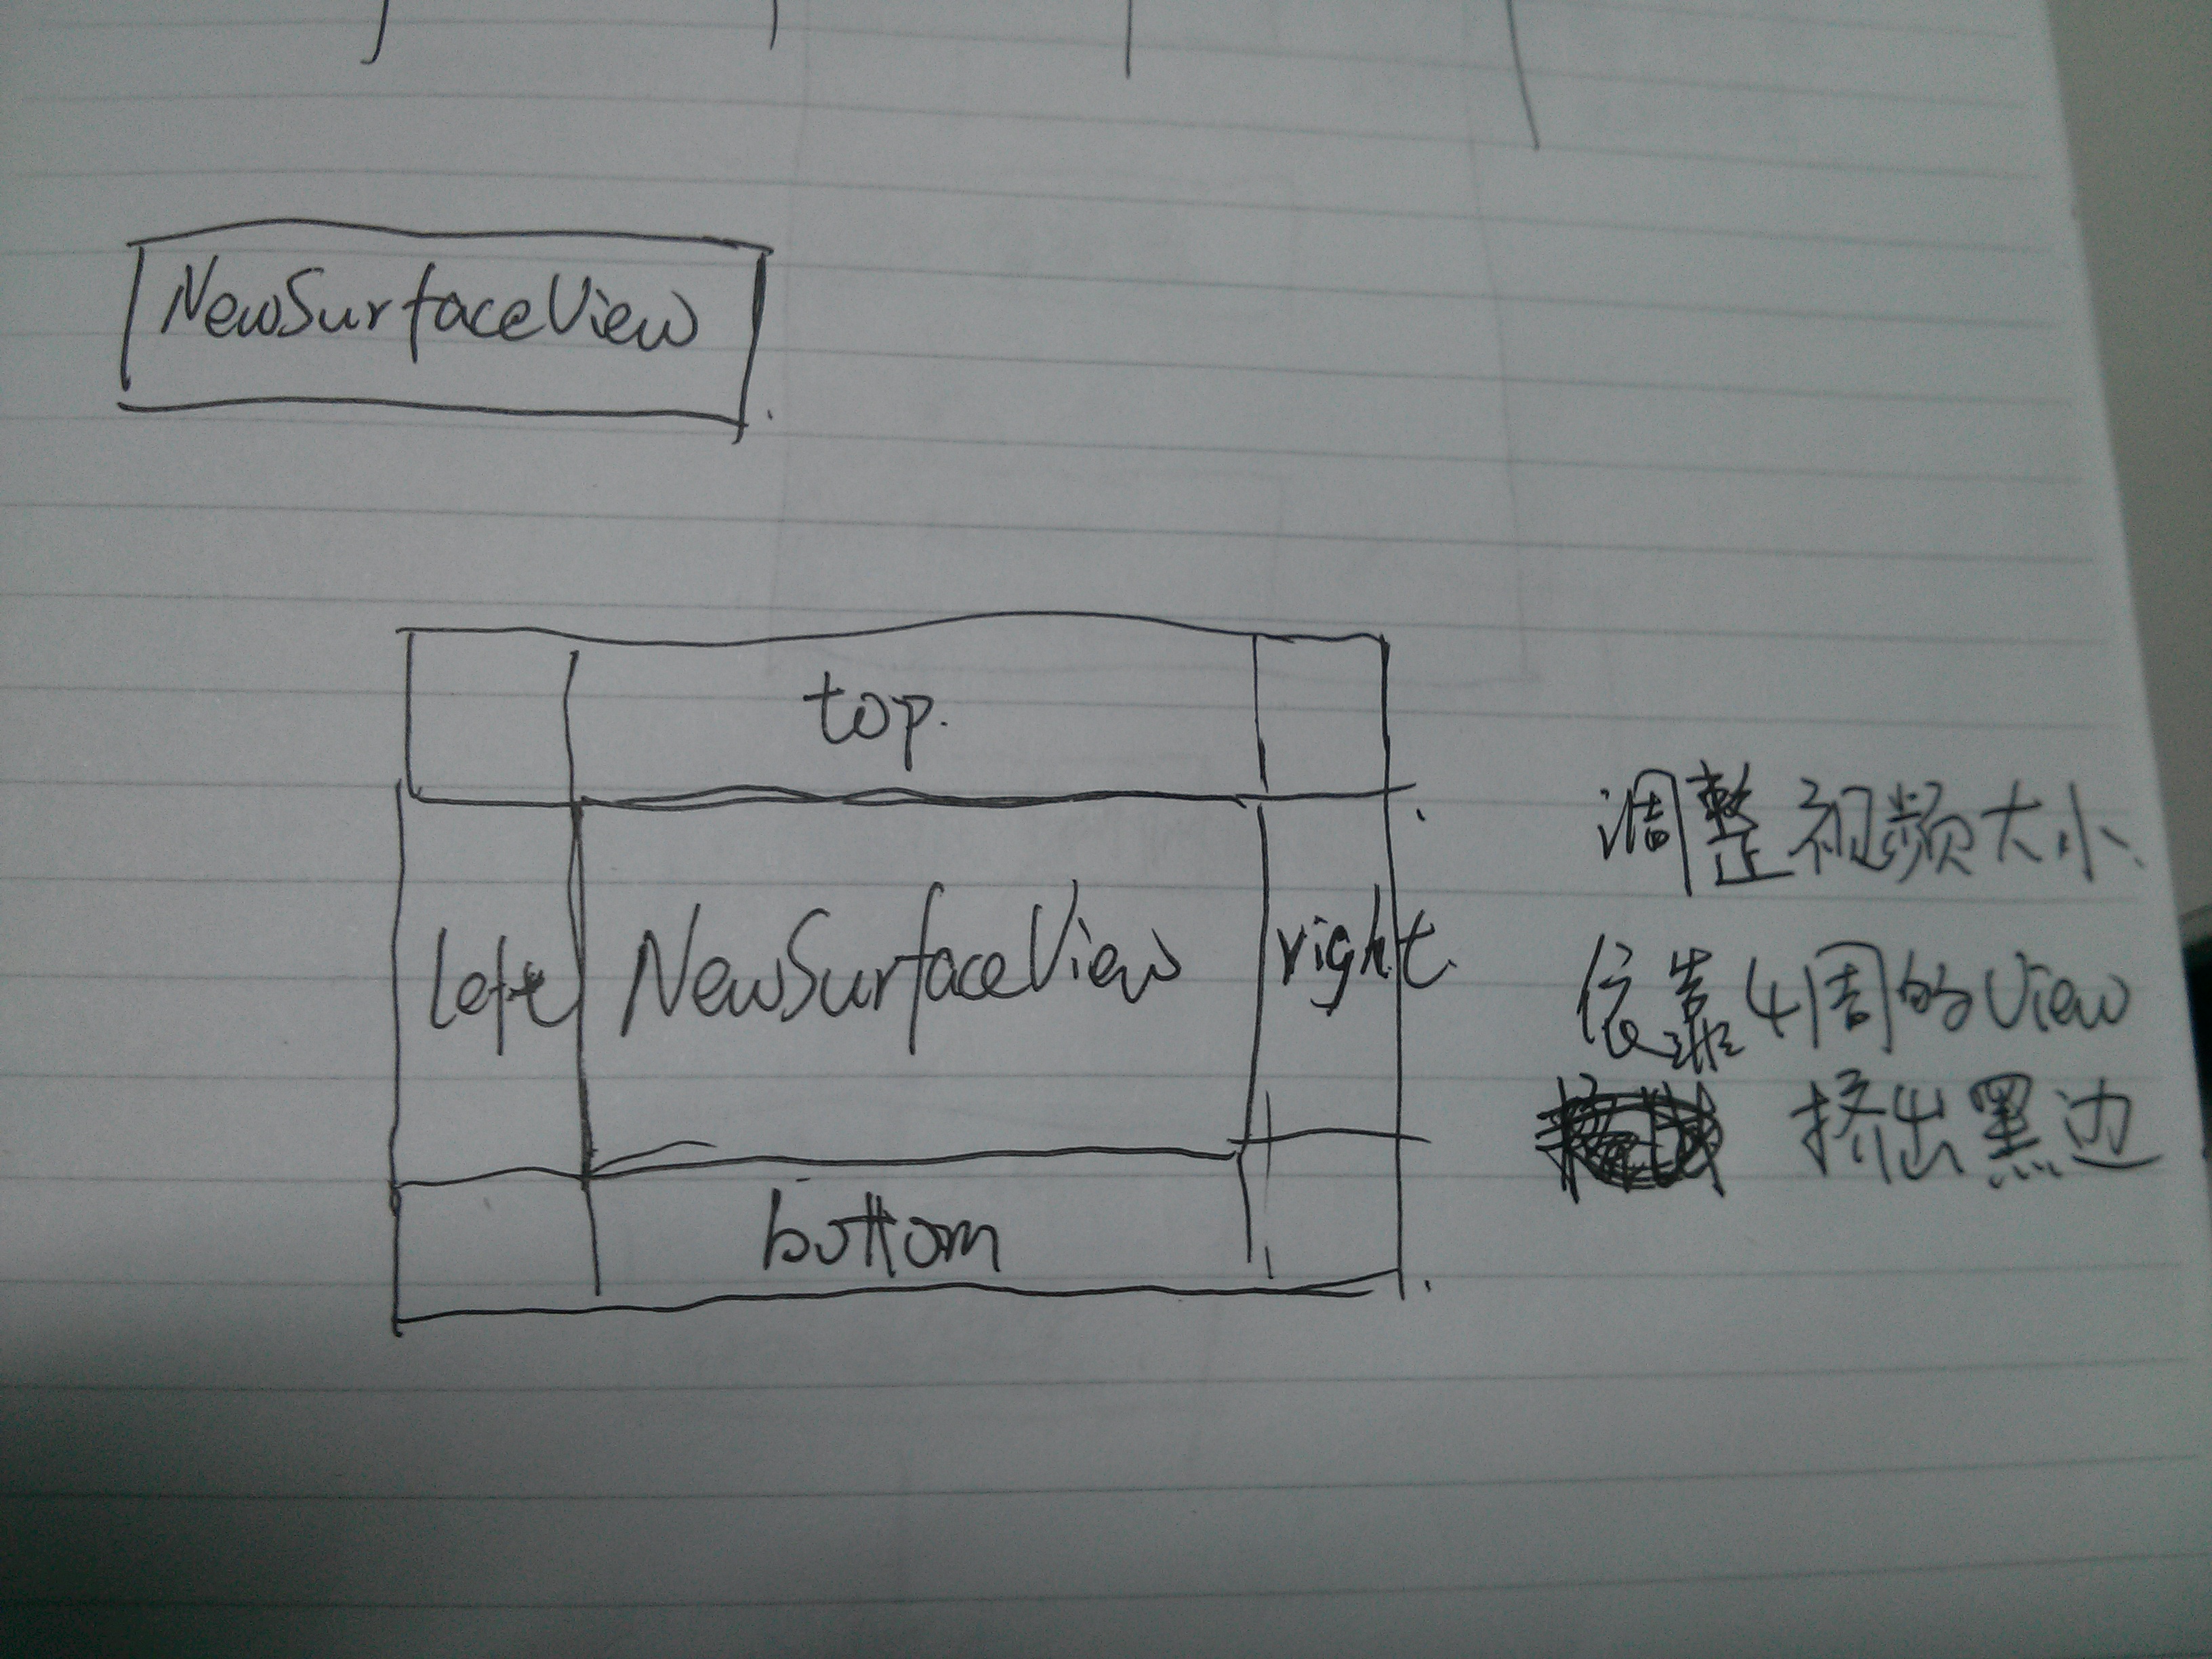 NewSurfaceView
top.
left NewSurfaceView right.
bottom
调整视频大小、
依靠4周的View
挤出黑边